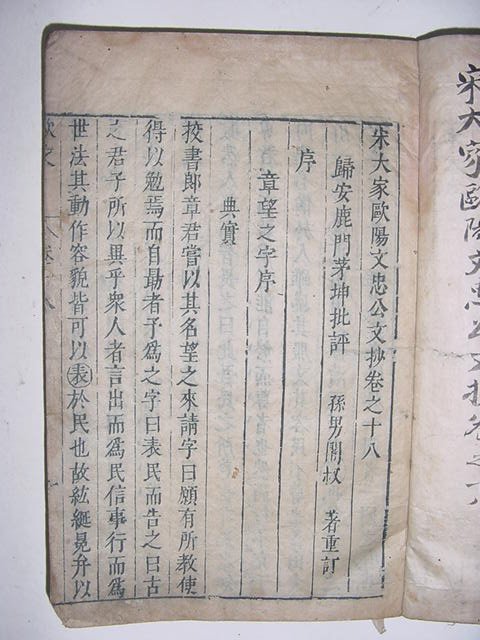 宋大家歐陽文忠公文抄卷之十八
歸安鹿門茅坤批評 孫男闇叔 著重訂
序
章望之字序
典實
挍書郎章君嘗以其名望之來請字曰願有所教使
得以勉焉而自最者予爲之字曰表民而告之曰古
之君子所以異乎衆人者言出而爲民信事行而爲
世法其動作容貌皆可以表於民也故紘綖冕弁以
歐文 卷十八